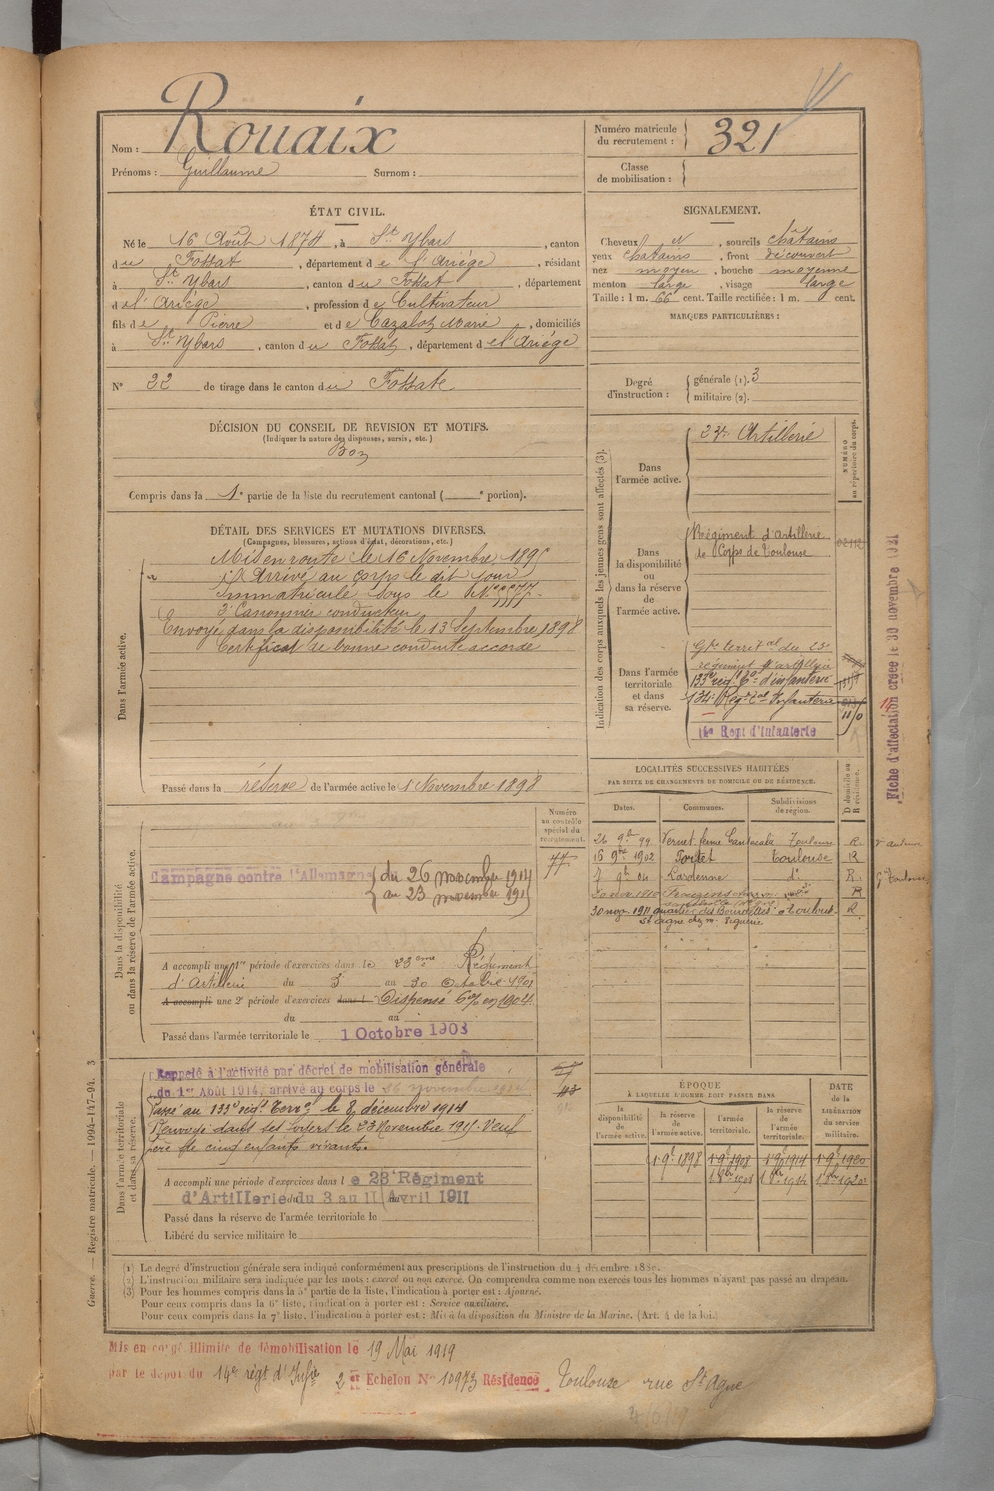 Nom : Rouaix
Prénoms : Guillaume Surnom :
Numéro matricule du recrutement : 321
Classe de mobilisation :
ÉTAT CIVIL.
Né le 16 Août 1874, à St Ybars, canton
du Fossat, département de l'Ariège, résidant
à St Ybars, canton du Fossat, département
de l'Ariège, profession de Cultivateur
fils de Pierre et de Cazalot Marie, domiciliés
à St Ybars, canton du Fossat, département de l'Ariège
N° 22 de tirage dans le canton du Fossat
SIGNALEMENT.
Cheveux N, sourcils châtains
yeux châtains, front découvert
nez moyen, bouche moyenne
menton large, visage large
Taille : 1 m. 66 cent. Taille rectifiée : 1 m. cent.
MARQUES PARTICULIÈRES :
Degré d'instruction : générale (1). 3
militaire (2).
DÉCISION DU CONSEIL DE REVISION ET MOTIFS.
(Indiquer la nature des dispenses, sursis, etc.)
Bon
Compris dans la 1re partie de la liste du recrutement cantonal ( e portion).
DÉTAIL DES SERVICES ET MUTATIONS DIVERSES.
(Campagnes, blessures, actions d'éclat, décorations, etc.)
Dans l'armée active.
Mis en route le 16 Novembre 189
Arrivé au corps le dit jour
Immatriculé sous le N°
Canonnier conducteur
Envoyé dans la disponibilité le 13 Septembre 1898
Certificat de bonne conduite accordé
Passé dans la réserve de l'armée active le 1 Novembre 1898
Indication des corps auxquels les jeunes gens sont affectés (3).
NUMÉRO au répertoire du corps.
Dans l'armée active.
23e Artillerie
Dans la disponibilité ou dans la réserve de l'armée active.
Régiment d'artillerie
de Corps de Toulouse
Dans l'armée territoriale et dans sa réserve.
Gpe territal du 23e
régiment d'artillerie
133e reg. t. d'infanterie
134e Regt tal Infanterie
Regt d'Infanterie
Fiche d'affectation créée le 30 novembre 1921
LOCALITÉS SUCCESSIVES HABITÉES
PAR SUITE DE CHANGEMENTS DE DOMICILE OU DE RÉSIDENCE.
Dates. Communes. Subdivisions de région. D domicile ou R résidence.
26 9bre 99 Vernet ferme Toulouse R
16 9bre 1902 Portet Toulouse R
7 9bre 04 Lardenne do R.
30 nov. 1911 quartier des Toulouse R
St Agne chez M.
Dans la disponibilité ou dans la réserve de l'armée active.
Numéro au contrôle spécial du recrutement.
77
Campagne contre l'Allemagne du 26 novembre 1914
au 23 novembre 1915
A accompli une 1re période d'exercices dans le 23eme Régiment
d'Artillerie du 3 au 30 Octobre 1901
A accompli une 2e période d'exercices dans l Dispensé 6% en 1904
du au
Passé dans l'armée territoriale le 1 Octobre 1908
Dans l'armée territoriale et dans sa réserve.
Rappelé à l'activité par décret de mobilisation générale
du 1er Août 1914, arrivé au corps le 26 novembre 1914
Passé au 133e regt Terr le 8 décembre 1914
Renvoyé dans ses foyers le 23 Novembre 1915. Veuf
père de cinq enfants vivants.
A accompli une période d'exercices dans le 23e Régiment
d'Artillerie du 3 au 11 Avril 1911
Passé dans la réserve de l'armée territoriale le
Libéré du service militaire le
ÉPOQUE
À LAQUELLE L'HOMME DOIT PASSER DANS
DATE de la LIBÉRATION du service militaire.
la disponibilité de l'armée active. la réserve de l'armée active. l'armée territoriale. la réserve de l'armée territoriale.
1 9bre 1898 1 9bre 1908 1 9bre 1914 1 9bre 1920
1 8bre 1908 1 8bre 1914 1 8bre 1920
(1) Le degré d'instruction générale sera indiqué conformément aux prescriptions de l'instruction du 4 décembre 1889.
(2) L'instruction militaire sera indiquée par les mots : exercé ou non exercé. On comprendra comme non exercés tous les hommes n'ayant pas passé au drapeau.
(3) Pour les hommes compris dans la 5e partie de la liste, l'indication à porter est : Ajourné.
Pour ceux compris dans la 6e liste, l'indication à porter est : Service auxiliaire.
Pour ceux compris dans la 7e liste, l'indication à porter est : Mis à la disposition du Ministre de la Marine. (Art. 4 de la loi.)
Guerre. — Registre matricule. — 1994-147-94. 3
Mis en congé illimité de démobilisation le 19 Mai 1919
par le dépôt du 14e régt d'Infie 2e Echelon N° 10973 Résidence Toulouse rue St Agne